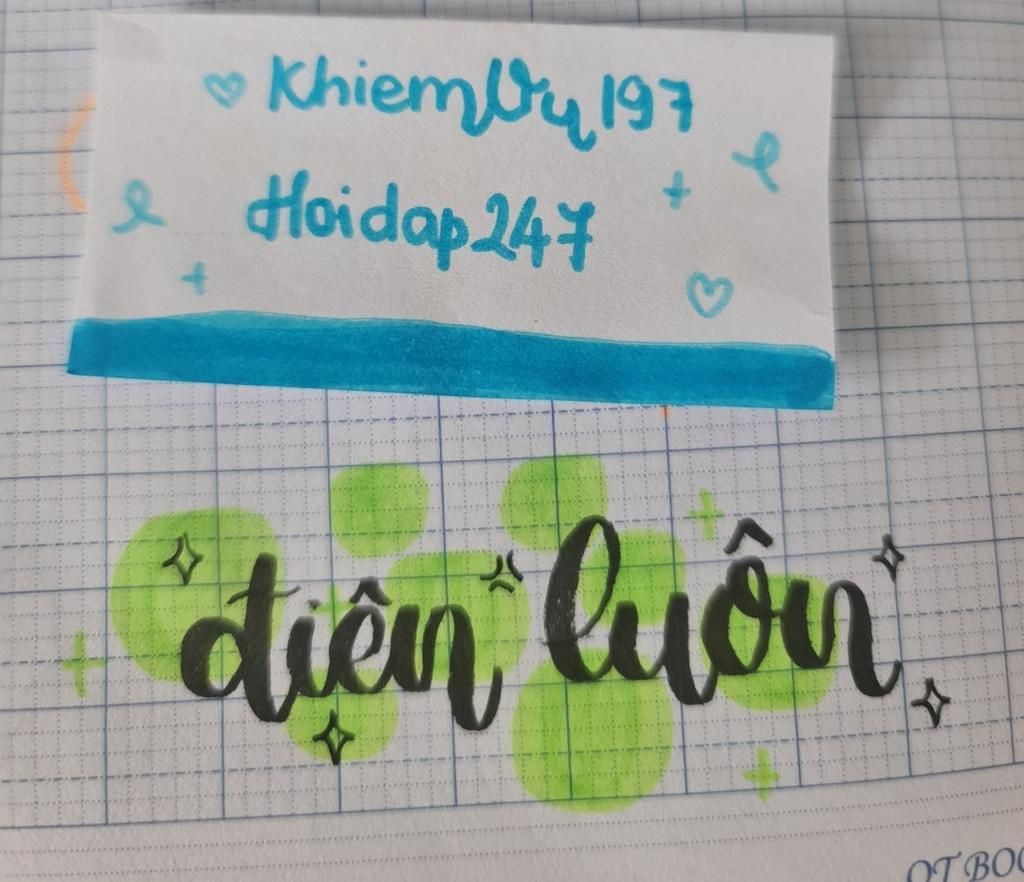 KhiemVu197
Hoidap247
điên luôn